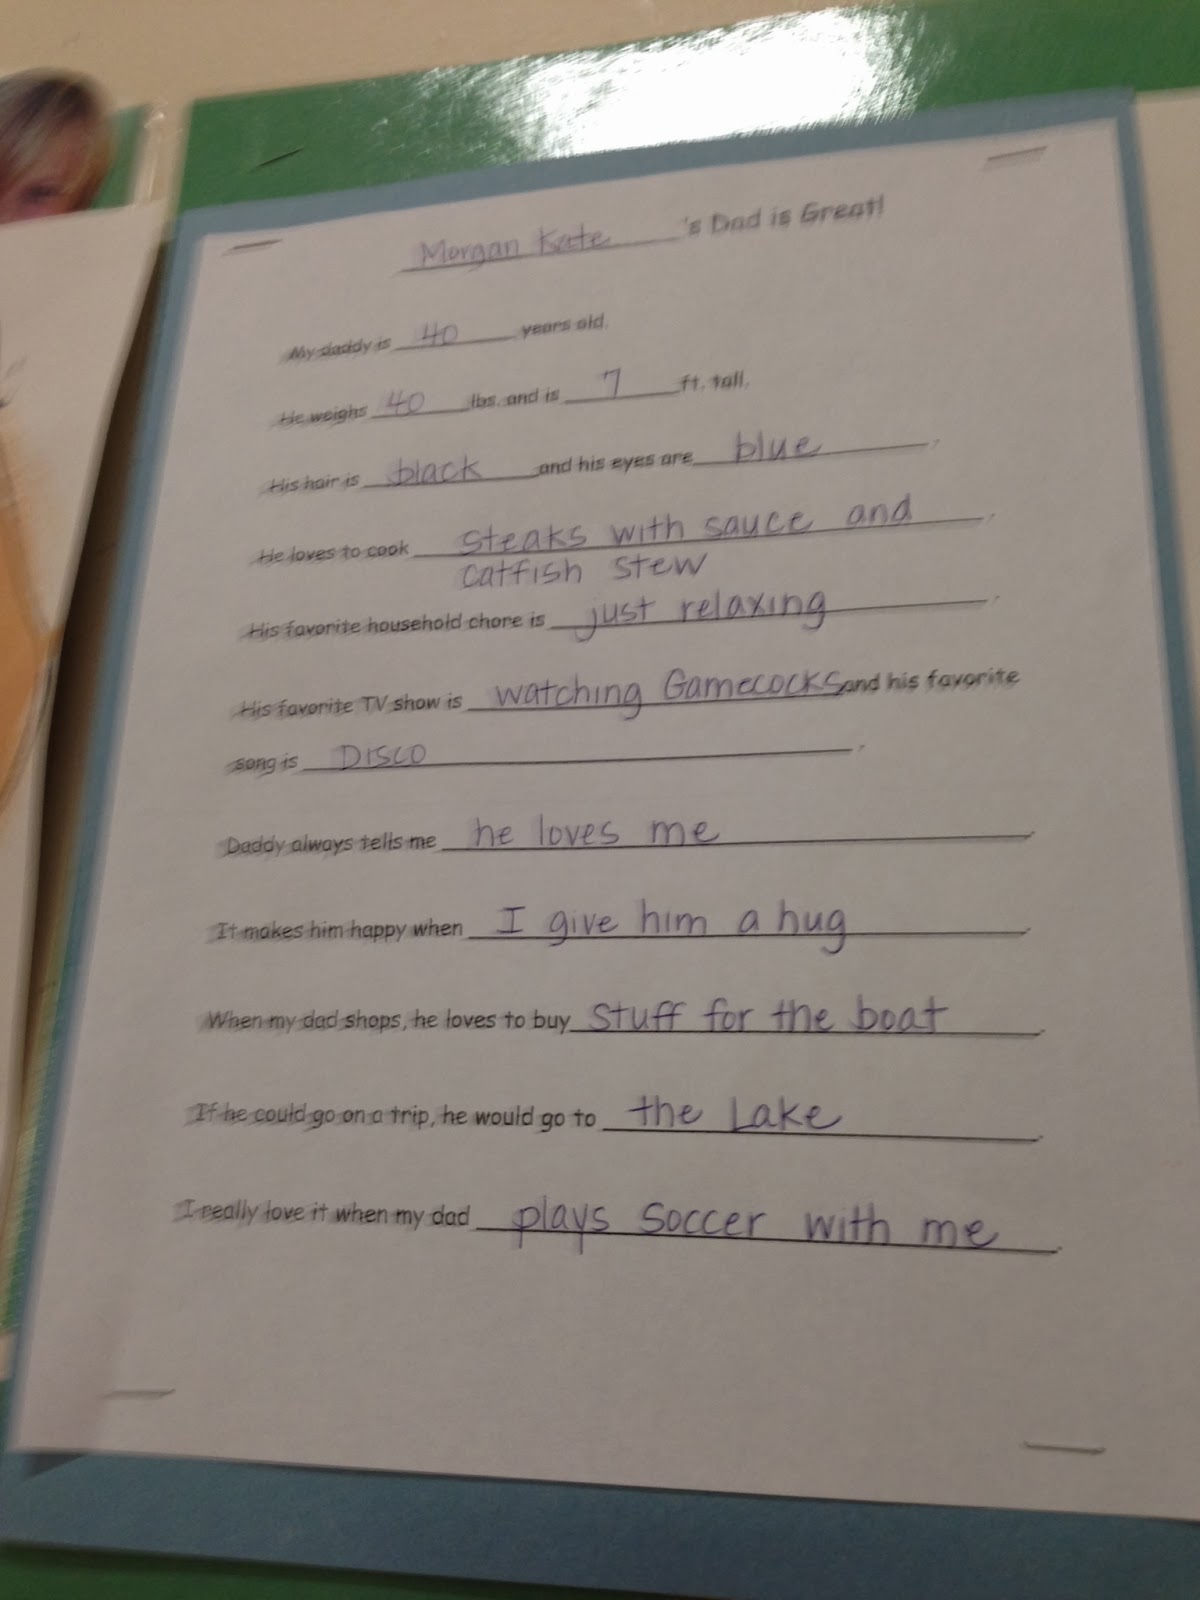 Morgan Kate 's Dad is Great!
My daddy is 40 years old.
He weighs 40 lbs. and is 7 ft. tall.
His hair is black and his eyes are blue.
He loves to cook steaks with sauce and.
catfish stew
His favorite household chore is just relaxing.
His favorite TV show is watching Gamecocks and his favorite
song is DISCO.
Daddy always tells me he loves me.
It makes him happy when I give him a hug.
When my dad shops, he loves to buy stuff for the boat.
If he could go on a trip, he would go to the Lake.
I really love it when my dad plays soccer with me.